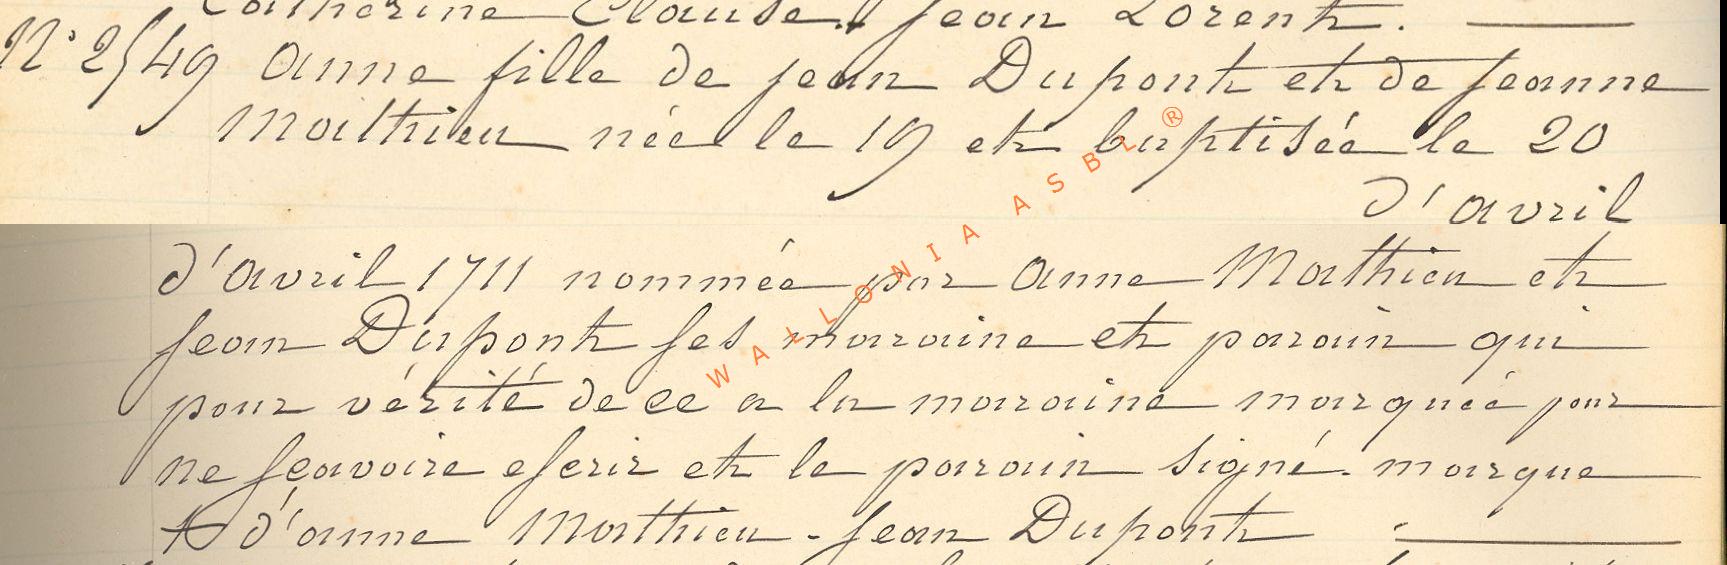 Catherine Clause. Jean Lorent.
N° 2549 anne fille de jean Dupont et de Jeanne
Mathieu née le 19 et baptisée le 20
d'avril
d'avril 1711 nommée par anne Mathieu et
Jean Dupont ses maraine et parain qui
pour vérité de ce a la maraine marquée pour
ne sçavoire escrir et le parain signé. marque
d'anne Mathieu - Jean Dupont
WALLONIA ASBL ®